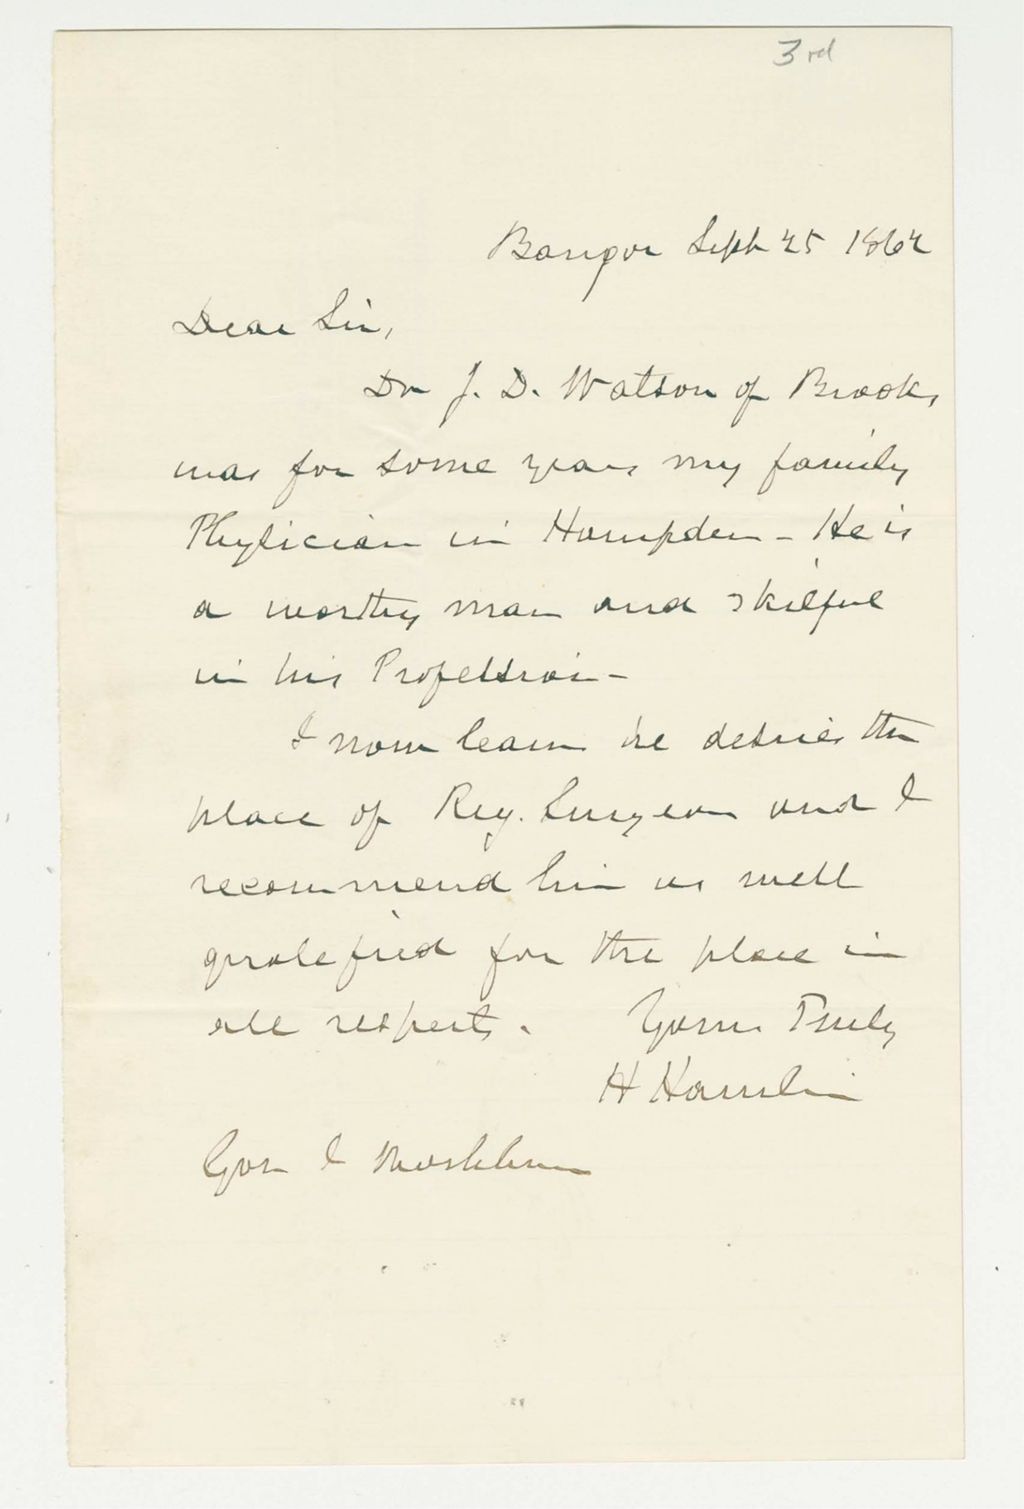 3rd
Bangor Sept 25 1862
Dear Sir,
Dr J. D. Watson of Brooks
was for some years my family
Physician in Hampden - He is
a worthy man and skilful
in his Profession -
I now learn he desires the
place of Reg. Surgeon and I
recommend him as well
qualified for the place in
all respects. Yours Truly
H Hamlin
Gov I Washburn